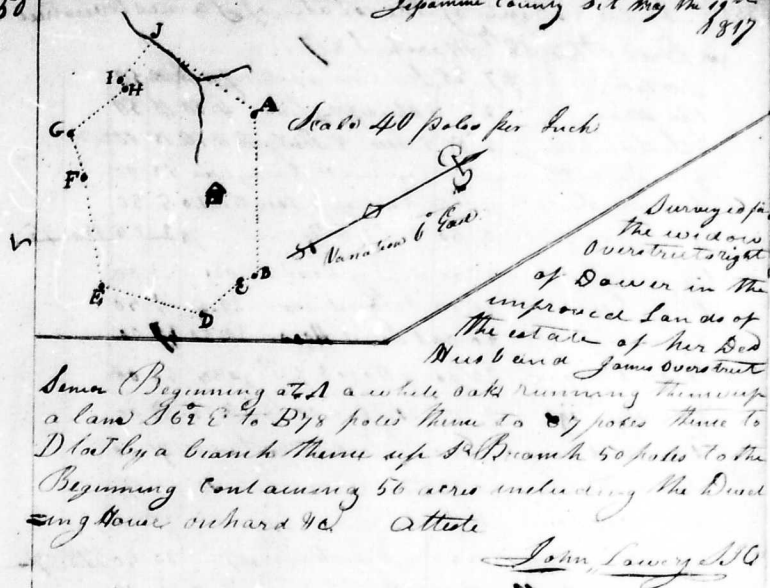 50
Jessamine County Sct May the 19th
1817
J
I
H
A
G
Scale 40 poles per Inch
F
S
Variation 6° East
B
C
E
D
Surveyed for
the widow
Overstreets right
of Dower in the
improved Lands of
the estate of her Decd
Husband James Overstreet
Senior Beginning at A a white oak running thence up
a lane S 62 E to B 78 poles thence to 7 poles thence to
D lost by a branch thence up sd Branch 50 poles to the
Beginning Containing 56 acres including the Dwel
=ing House orchard &c Atteste
John Lowry